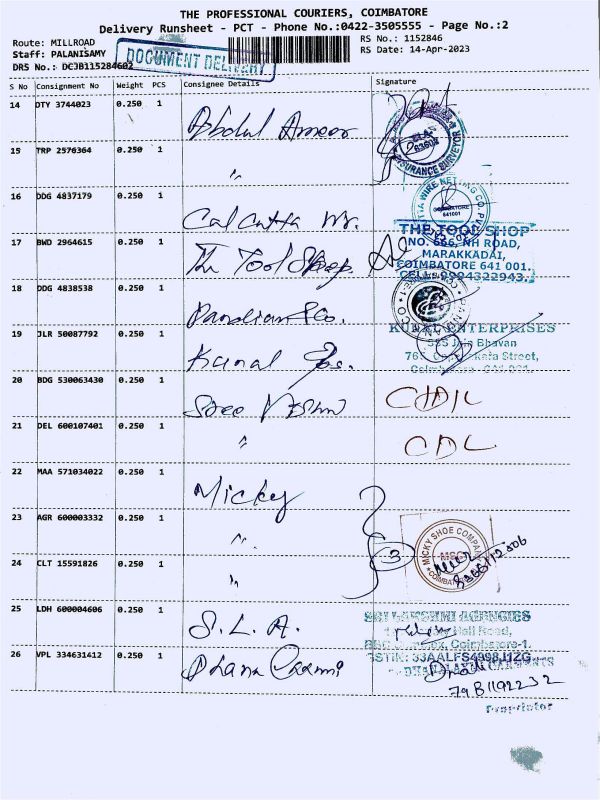 THE PROFESSIONAL COURIERS, COIMBATORE
Delivery Runsheet - PCT - Phone No.:0422-3505555 - Page No.:2
Route: MILLROAD
RS No.: 1152846
Staff: PALANISAMY
RS Date: 14-Apr-2023
DOCUMENT DELIVERY
DRS No.: DCJB115284602
S No Consignment No Weight PCS Consignee Details Signature
14 DTY 3744023 0.250 1 Abdul Ameer
INSURANCE SURVEYOR
15 TRP 2576364 0.250 1 "
16 DDG 4837179 0.250 1 Calcutta Wr.
COIMBATORE
641001
17 BWD 2964615 0.250 1 The Tool Shop
THE TOOL SHOP
NO. 666, NH ROAD,
MARAKKADAI,
COIMBATORE 641 001.
CELL: 9994322943.
18 DDG 4838538 0.250 1 Pandian & Co.
19 JLR 50087792 0.250 1 Kunal
KUNAL ENTERPRISES
Jain Bhavan
Street,
Coimbatore - 641 001.
20 BDG 530063430 0.250 1 Sree
21 DEL 600107401 0.250 1 " CDL
22 MAA 571034022 0.250 1 Micky
23 AGR 600003332 0.250 1 "
3
MICKY SHOE COMPANY
MSC
24 CLT 15591826 0.250 1 "
25 LDH 600004606 0.250 1 S. L. A.
SRI LAKSHMI AGENCIES
Hall Road,
Complex, Coimbatore-1.
GSTIN: 33AALFS4998J1ZG
26 VPL 334631412 0.250 1 Dhana Laxmi
GARMENTS
Proprietor